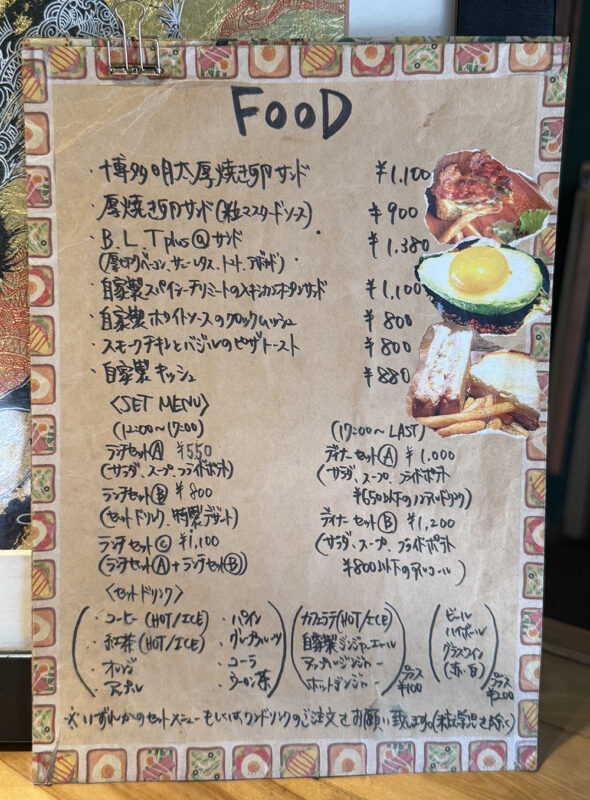 FOOD
・博多明太厚焼き卵サンド ¥1,100
・厚焼き卵サンド(粒マスタードソース) ¥900
・B.L.T plus Ⓐ サンド ¥1,380
(厚切りベーコン、サニーレタス、トマト、アボカド)
・自家製スパイシーチリミートのメキシカンオープンサンド ¥1,100
・自家製ホワイトソースのクロックムッシュ ¥800
・スモークチキンとバジルのピザトースト ¥800
・自家製キッシュ ¥880
〈SET MENU〉
(12:00〜17:00)
ランチセットⒶ ¥550
(サラダ、スープ、フライドポテト)
ランチセットⒷ ¥800
(セットドリンク、特製デザート)
ランチセットⒸ ¥1,100
(ランチセットⒶ+ランチセットⒷ)
(17:00〜LAST)
ディナーセットⒶ ¥1,000
(サラダ、スープ、フライドポテト
¥650以下のノンアルドリンク)
ディナーセットⒷ ¥1,200
(サラダ、スープ、フライドポテト
¥800以下のアルコール)
〈セットドリンク〉
・コーヒー(HOT/ICE)
・紅茶(HOT/ICE)
・オレンジ
・アップル
・パイン
・グレープフルーツ
・コーラ
・ウーロン茶
カフェラテ(HOT/ICE)
自家製ジンジャーエール
アップルジンジャー
ホットジンジャー
プラス
¥100
ビール
ハイボール
グラスワイン
(赤・白)
プラス
¥200
※いずれかのセットメニューもしくはワンドリンクのご注文をお願い致します。